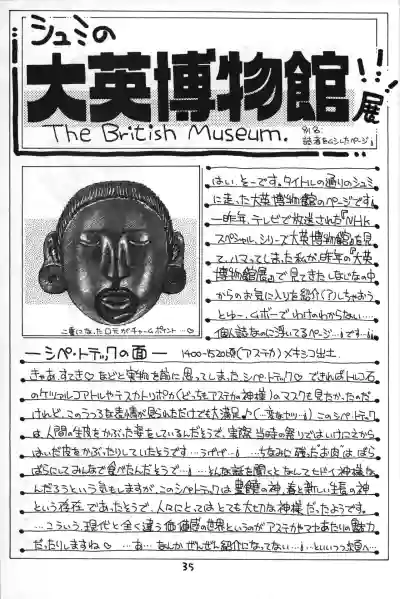 シュミの
大英博物館展!!
The British Museum.
別名
読者をムシしたページ!
はい、そーです。タイトルの通りのシュミ
に走った大英博物館のページです!
一昨年、テレビで放送された『NHK
スペシャル、シリーズ大英博物館』を見
て、ハマってしまった私が昨年の『大英
博物館展』で見てきたしなじなの中
からのお気に入りを紹介(アル)ちゃおう
とゆー、6ボーでわけのわからない…
個人誌なのに浮いてるページ…!です…!!
二重になった口元がチャームポイント…♡
―シペ・トテックの面― 1400-1520頃(アステカ)メキシコ出土.
きゃあ、すてき♡などと実物を前に思ってしまった、シペ・トテック♡できればトルコ石
のケツァルコアトルやテスカトリポカ(どっちもアステカの神様)のマスクも見たかったのだ
けれど、このうつろな表情が見られただけでも大満足♪(…変なヤツ…!)このシペ・トテック
は人間の生皮をかぶった姿をしているんだそうで、実際、当時の祭りではいけにえから
はいだ皮をかぶったりしていたそうです…うげげ…! …ちなみに残ったお肉は、ばら
ばらにしてみんなで食べたんだそうで…! …どんな話を聞くとなんてヒドイ神様な
んだろうという気もしますが、このシペ・トテックは豊饒の神、春と新しい生長の神
という存在であったそうで、人々にとってはとても大切な神様だったようです。
…こういう、現代と全く違う価値感の世界というのがアステカやマヤあたりの魅力
だったりしますね♡ …あ…なんかぜんぜん紹介になってない…!…といいつつ次頁へ…
35